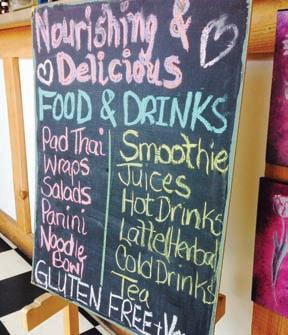 Nourishing &
Delicious
FOOD & DRINKS
Pad Thai
Wraps
Salads
Panini
Noodle
Bowl
Smoothie
Juices
Hot Drinks
Latte/Herbal
Cold Drinks
Tea
GLUTEN FREE +